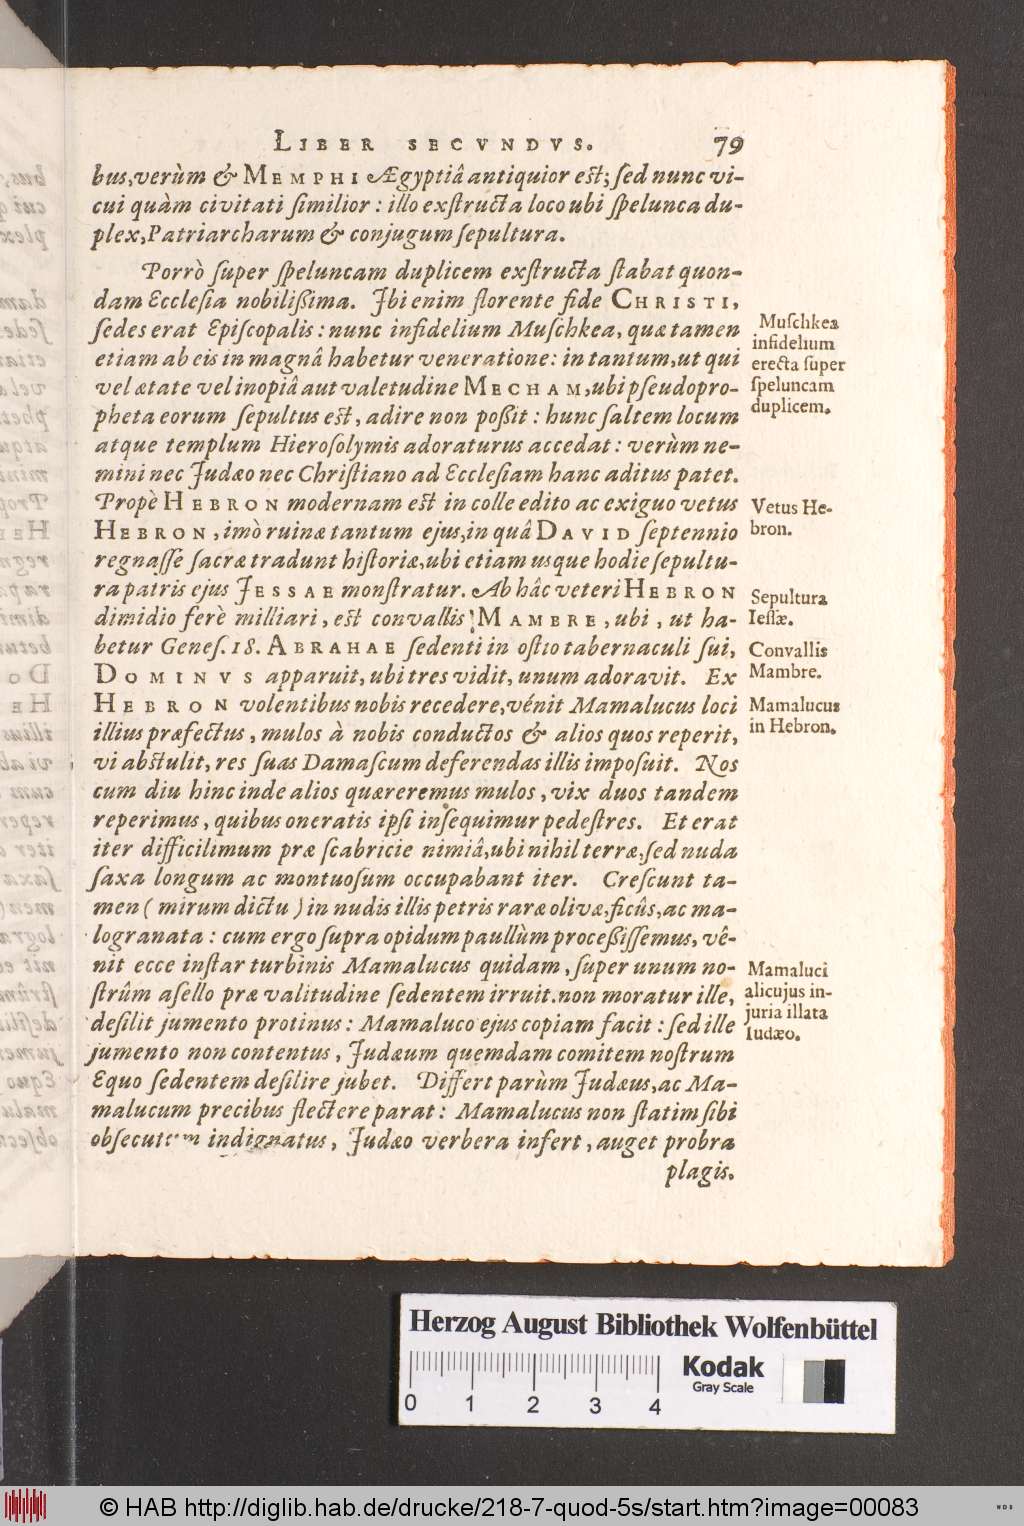 LIBER SECVNDVS. 79
bus, verùm & MEMPHI Ægyptiâ antiquior est; sed nunc vi-
cui quàm civitati similior: illo exstructa loco ubi spelunca du-
plex, Patriarcharum & conjugum sepultura.
Porrò super speluncam duplicem exstructa stabat quon-
dam Ecclesia nobilißima. Ibi enim florente fide CHRISTI,
sedes erat Episcopalis: nunc infidelium Muschkea, quæ tamen
etiam ab eis in magnâ habetur veneratione: in tantum, ut qui
vel ætate vel inopiâ aut valetudine MECHAM, ubi pseudopro-
pheta eorum sepultus est, adire non poßit: hunc saltem locum
atque templum Hierosolymis adoraturus accedat: verùm ne-
mini nec Judæo nec Christiano ad Ecclesiam hanc aditus patet.
Propè HEBRON modernam est in colle edito ac exiguo vetus
HEBRON, imò ruinæ tantum ejus, in quâ DAVID septennio
regnasse sacræ tradunt historiæ, ubi etiam usque hodie sepultu-
ra patris ejus JESSAE monstratur. Ab hâc veteri HEBRON
dimidio ferè milliari, est convallis MAMBRE, ubi, ut ha-
betur Genes. 18. ABRAHAE sedenti in ostio tabernaculi sui,
DOMINVS apparuit, ubi tres vidit, unum adoravit. Ex
HEBRON volentibus nobis recedere, vénit Mamalucus loci
illius præfectus, mulos à nobis conductos & alios quos reperit,
vi abstulit, res suas Damascum deferendas illis imposuit. Nos
cum diu hinc inde alios quæreremus mulos, vix duos tandem
reperimus, quibus oneratis ipsi insequimur pedestres. Et erat
iter difficilimum præ scabricie nimiâ, ubi nihil terræ, sed nuda
saxa longum ac montuosum occupabant iter. Crescunt ta-
men (mirum dictu) in nudis illis petris raræ olivæ, ficûs, ac ma-
logranata: cum ergo supra opidum paullùm proceßissemus, vê-
nit ecce instar turbinis Mamalucus quidam, super unum no-
strûm asello præ valitudine sedentem irruit. non moratur ille,
desilit jumento protinus: Mamaluco ejus copiam facit: sed ille
jumento non contentus, Judæum quemdam comitem nostrum
Equo sedentem desilire jubet. Differt parùm Judæus, ac Ma-
malucum precibus flectere parat: Mamalucus non statim sibi
indignatus, Judæo verbera infert, auget probra
plagis.
Muschkea
infidelium
erecta super
speluncam
duplicem.
Vetus He-
bron.
Sepultura
Iessæ.
Convallis
Mambre.
Mamalucus
in Hebron.
Mamaluci
alicujus in-
juria illata
Iudæo.
Herzog August Bibliothek Wolfenbüttel
Kodak
Gray Scale
0 1 2 3 4
© HAB http://diglib.hab.de/drucke/218-7-quod-5s/start.htm?image=00083